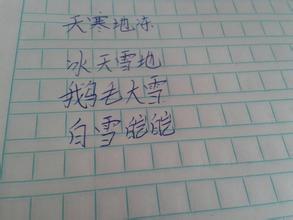 天寒地冻
冰天雪地
鹅毛大雪
白雪皑皑